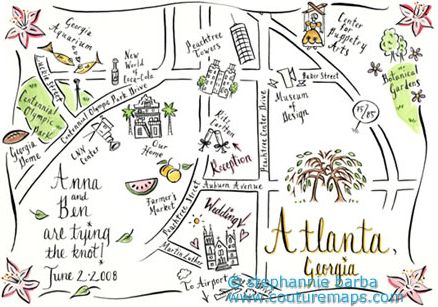 Georgia
Aquarium
New
World
of
Coca-Cola
Peachtree
Towers
Center
for
Puppetry
Arts
Luckie Street
Baker Street
Botanical
Gardens
Centennial
Olympic
Park
Centennial Olympic Park Drive
Museum
of
Design
75/85
Georgia
Dome
CNN
Center
Our
Home
Ritz
Carlton
Peachtree Center Drive
Reception
Anna
and
Ben
are tying
the knot!
June 2·2008
Farmer's
Market
Auburn Avenue
Peachtree Street
Wedding
Martin Luther
To Airport
Atlanta,
Georgia
© stephannie barba
www.couturemaps.com